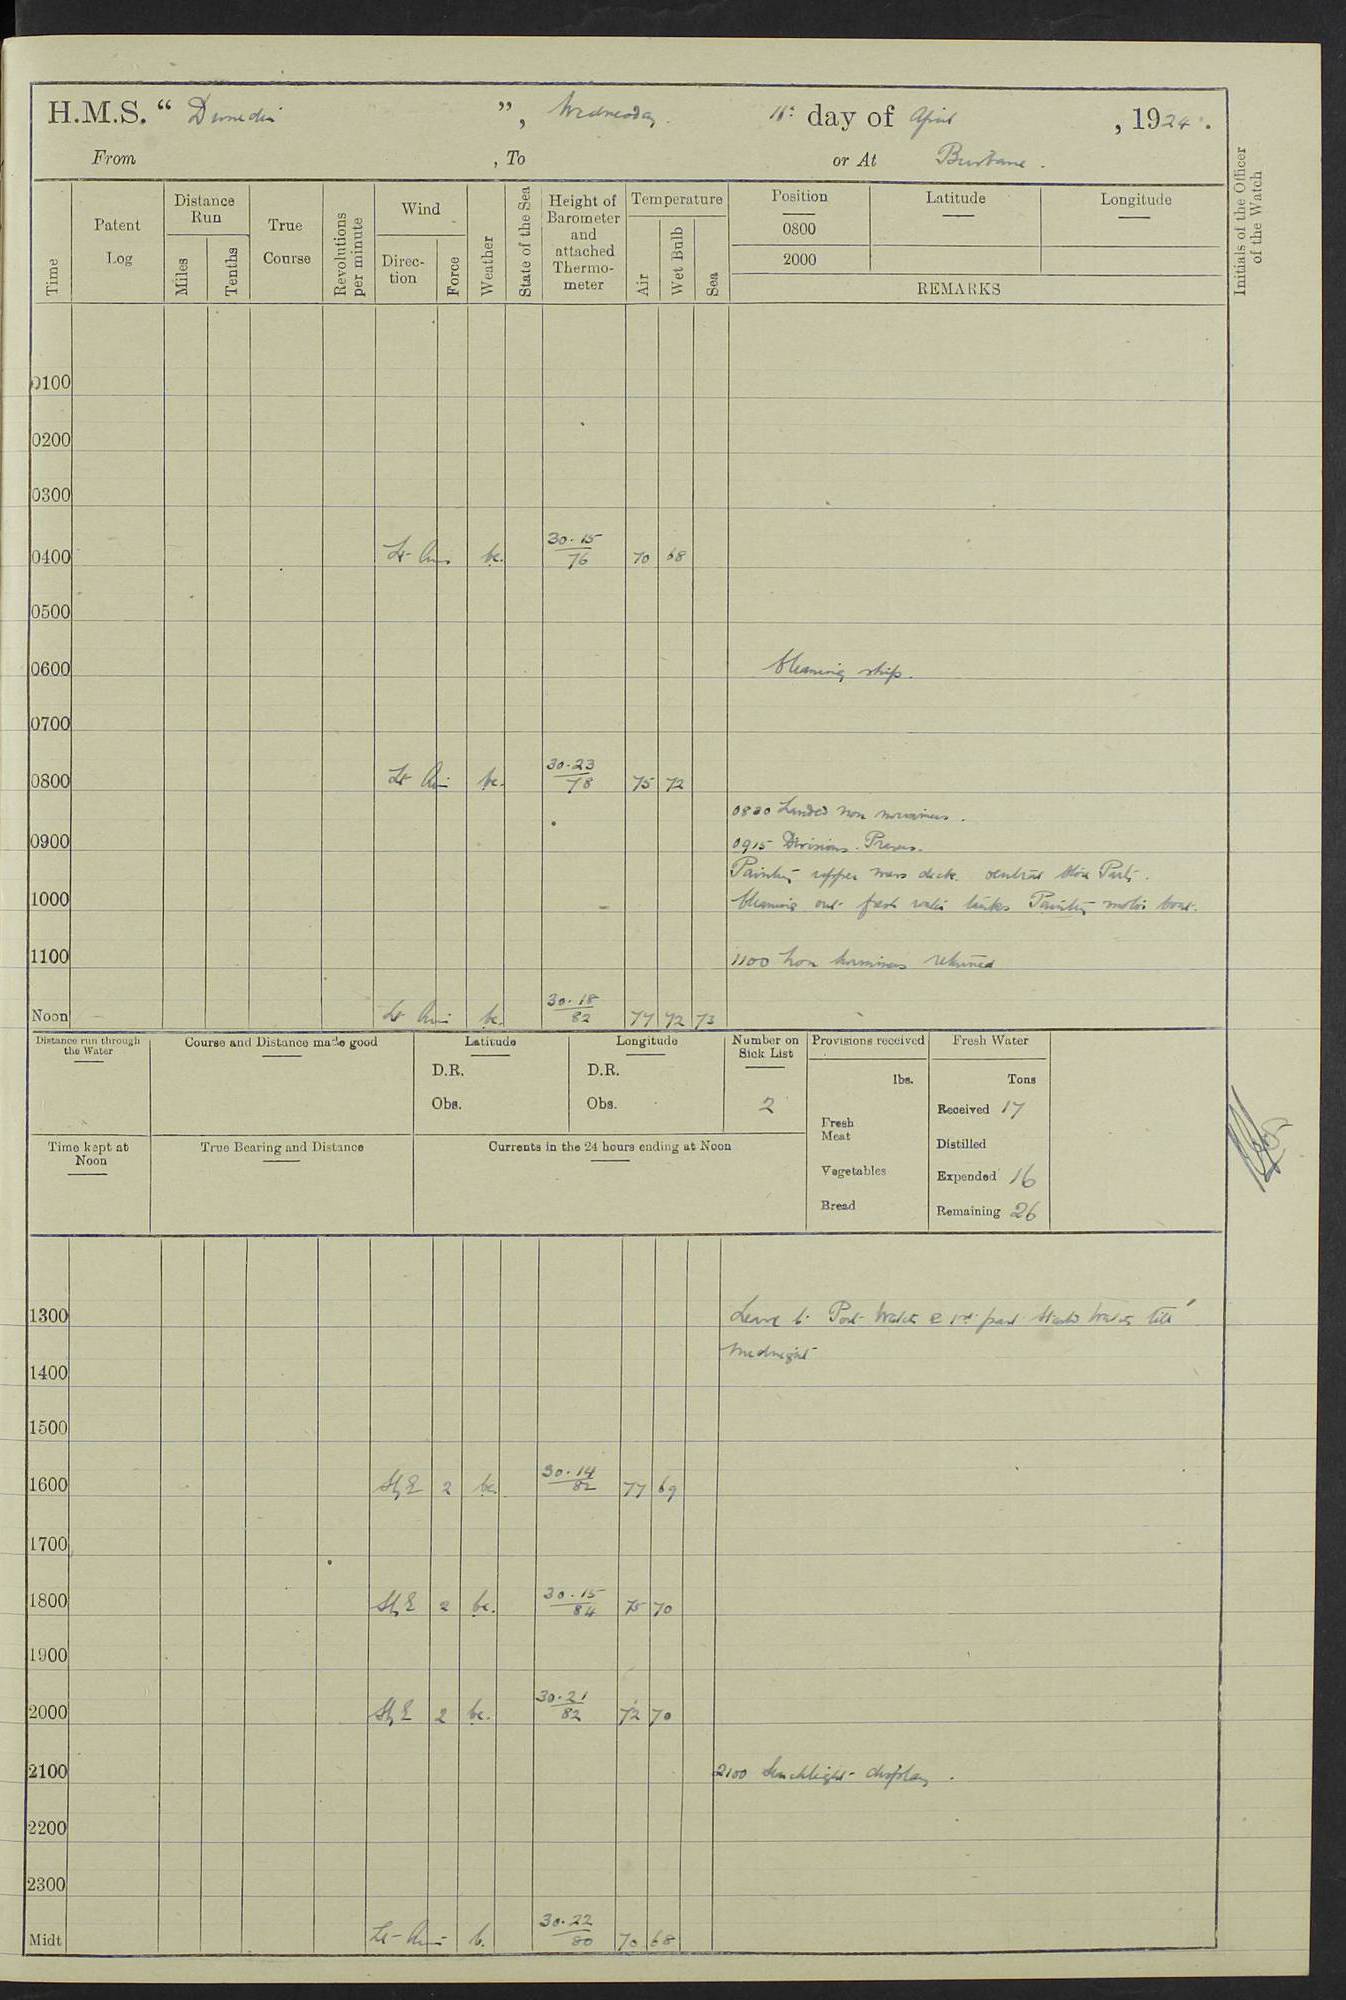 H.M.S. “ Dunedin ”, Wednesday 16th day of April , 1924.
From , To or At Brisbane.
Time
Patent Log
Distance Run
Miles
Tenths
True Course
Revolutions per minute
Wind
Direc-tion
Force
Weather
State of the Sea
Height of Barometer and attached Thermo-meter
Temperature
Air
Wet Bulb
Sea
Position Latitude Longitude
0800
2000
REMARKS
Initials of the Officer of the Watch
0100
0200
0300
0400 Lt Airs bc. 30.15 76 70 68
0500
0600 Cleaning ship.
0700
0800 Lt Airs bc. 30.23 78 75 72
0830 Landed non swimmers.
0900 0915 Divisions. Prayers.
Painting upper mess deck.
1000 Cleaning out fresh water tanks Painting motor boat.
1100 1100 Non swimmers returned
Noon Lt Airs bc. 30.18 82 77 72 73
Distance run through the Water
Course and Distance made good
Latitude
D.R.
Obs.
Longitude
D.R.
Obs.
Number on Sick List
2
Provisions received
lbs.
Fresh Meat
Vegetables
Bread
Fresh Water
Tons
Received 17
Distilled
Expended 16
Remaining 26
Time kept at Noon
True Bearing and Distance
Currents in the 24 hours ending at Noon
1300 Leave to Port Watch & 1st part Starbd Watch till
midnight
1400
1500
1600 SbyE 2 bc. 30.14 82 77 69
1700
1800 SbyE 2 bc. 30.15 84 75 70
1900
2000 SbyE 2 bc. 30.21 82 72 70
2100 2100 Searchlight display.
2200
2300
Midt Lt Airs b. 30.22 80 70 68